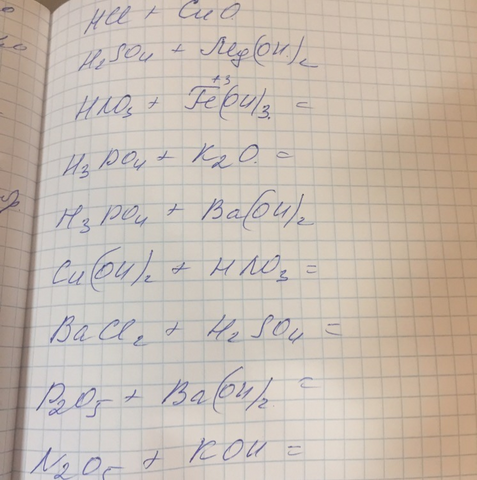 HCl + CuO
H₂SO₄ + Mg(OH)₂
HNO₃ + Fe⁺³(OH)₃ =
H₃PO₄ + K₂O =
H₃PO₄ + Ba(OH)₂
Cu(OH)₂ + HNO₃ =
BaCl₂ + H₂SO₄ =
P₂O₅ + Ba(OH)₂ =
N₂O₅ + KOH =